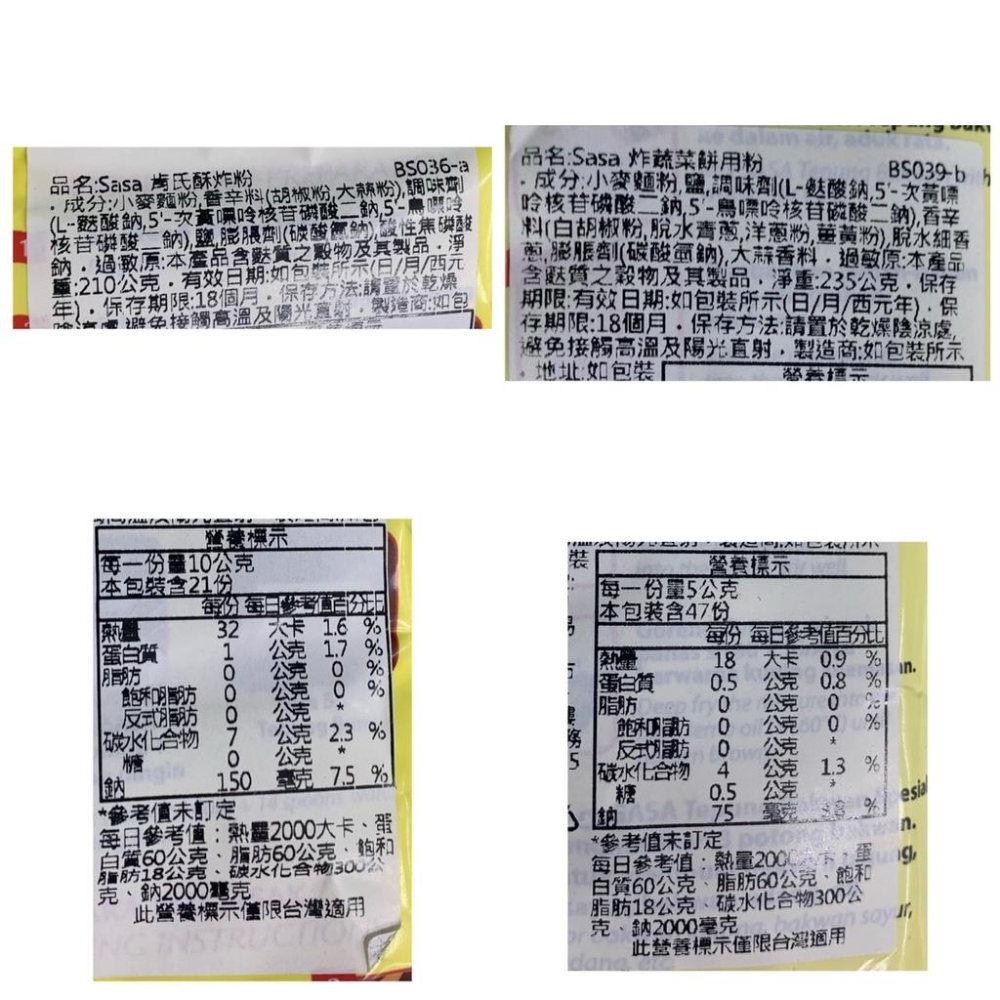 品名:Sasa 肯氏酥炸粉 BS036-a
．成分:小麥麵粉,香辛料(胡椒粉,大蒜粉),調味劑
(L-麩酸鈉,5'-次黃嘌呤核苷磷酸二鈉,5'-鳥嘌呤
核苷磷酸二鈉),鹽,膨脹劑(碳酸氫鈉),酸性焦磷酸
鈉．過敏原:本產品含麩質之穀物及其製品．淨
重:210公克．有效日期:如包裝所示(日/月/西元
年)．保存期限:18個月．保存方法:請置於乾燥
陰涼處,避免接觸高溫及陽光直射．製造商:如包
品名:Sasa 炸蔬菜餅用粉 BS039-b
．成分:小麥麵粉,鹽,調味劑(L-麩酸鈉,5'-次黃嘌
呤核苷磷酸二鈉,5'-鳥嘌呤核苷磷酸二鈉),香辛
料(白胡椒粉,脫水青蔥,洋蔥粉,薑黃粉),脫水細香
蔥,膨脹劑(碳酸氫鈉),大蒜香料．過敏原:本產品
含麩質之穀物及其製品．淨重:235公克．保存
期限:有效日期:如包裝所示(日/月/西元年)．保
存期限:18個月．保存方法:請置於乾燥陰涼處,
避免接觸高溫及陽光直射．製造商:如包裝所示
．地址:如包裝
營養標示
營養標示
每一份量10公克
本包裝含21份
每份 每日參考值百分比
熱量 32 大卡 1.6 %
蛋白質 1 公克 1.7 %
脂肪 0 公克 0 %
飽和脂肪 0 公克 0 %
反式脂肪 0 公克 *
碳水化合物 7 公克 2.3 %
糖 0 公克 *
鈉 150 毫克 7.5 %
*參考值未訂定
每日參考值：熱量2000大卡、蛋
白質60公克、脂肪60公克、飽和
脂肪18公克、碳水化合物300公
克、鈉2000毫克
此營養標示僅限台灣適用
營養標示
每一份量5公克
本包裝含47份
每份 每日參考值百分比
熱量 18 大卡 0.9 %
蛋白質 0.5 公克 0.8 %
脂肪 0 公克 0 %
飽和脂肪 0 公克 0 %
反式脂肪 0 公克 *
碳水化合物 4 公克 1.3 %
糖 0.5 公克 *
鈉 75 毫克 3.8 %
*參考值未訂定
每日參考值：熱量2000大卡、蛋
白質60公克、脂肪60公克、飽和
脂肪18公克、碳水化合物300公
克、鈉2000毫克
此營養標示僅限台灣適用